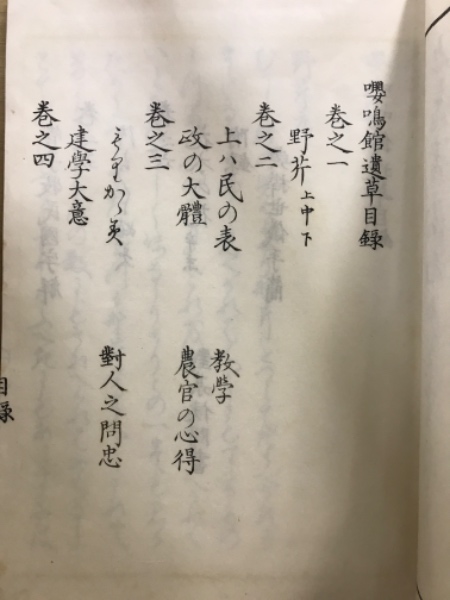 嚶鳴館遺草目録
巻之一
野芹上中下
巻之二
上ハ民の表 教學
政の大體 農官の心得
巻之三
もりかゝ美 對人之問忠
建學大意
巻之四
目録